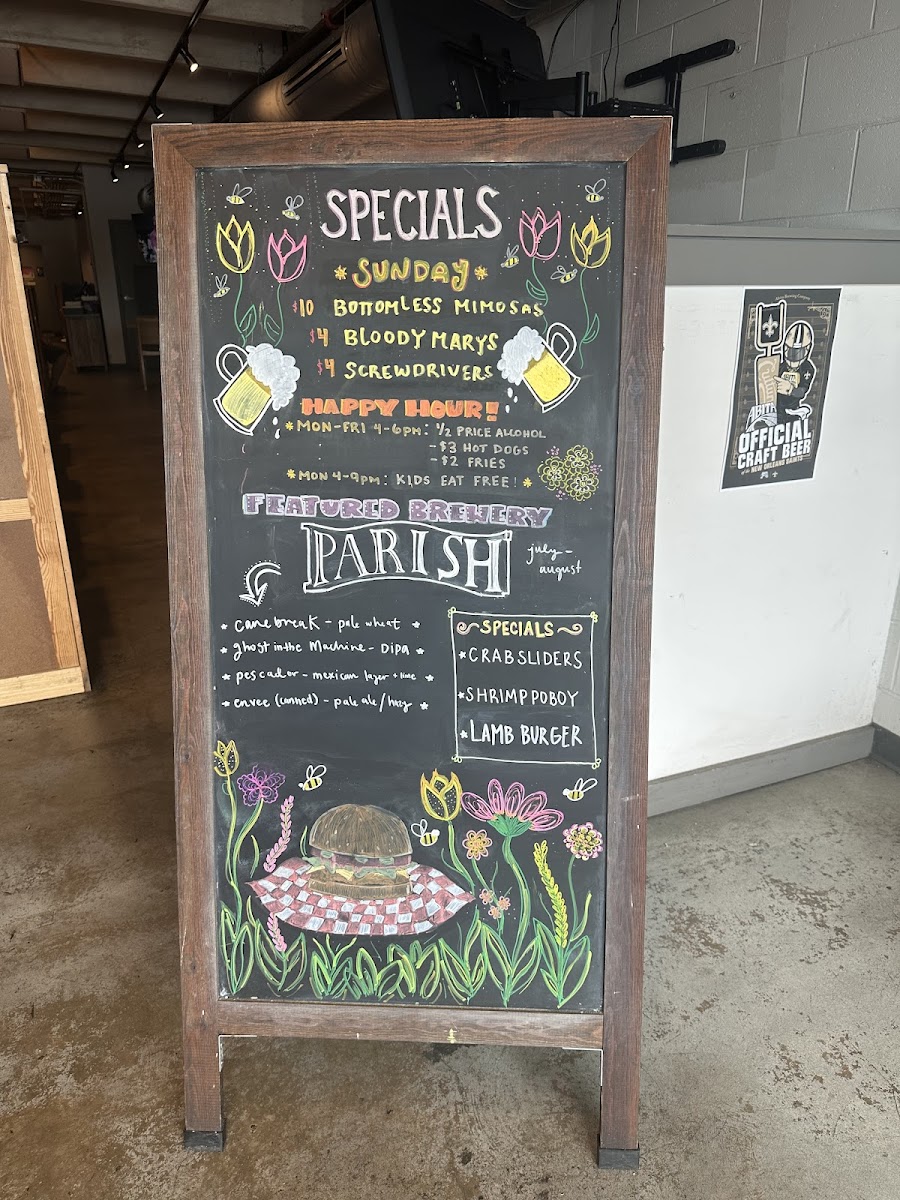 SPECIALS
*SUNDAY*
$10 BOTTOMLESS MIMOSAS
$4 BLOODY MARYS
$4 SCREWDRIVERS
HAPPY HOUR!
*MON-FRI 4-6PM: ½ PRICE ALCOHOL
-$3 HOT DOGS
-$2 FRIES
*MON 4-9PM: KIDS EAT FREE!*
FEATURED BREWERY
PARISH
july-
august
* canebreak - pale wheat *
* ghost in the Machine - DIPA *
* pescador - mexican lager + lime *
* envee (canned) - pale ale/hazy *
~SPECIALS~
*CRAB SLIDERS
*SHRIMP POBOY
*LAMB BURGER
ABITA
OFFICIAL
CRAFT BEER
of the NEW ORLEANS SAINTS